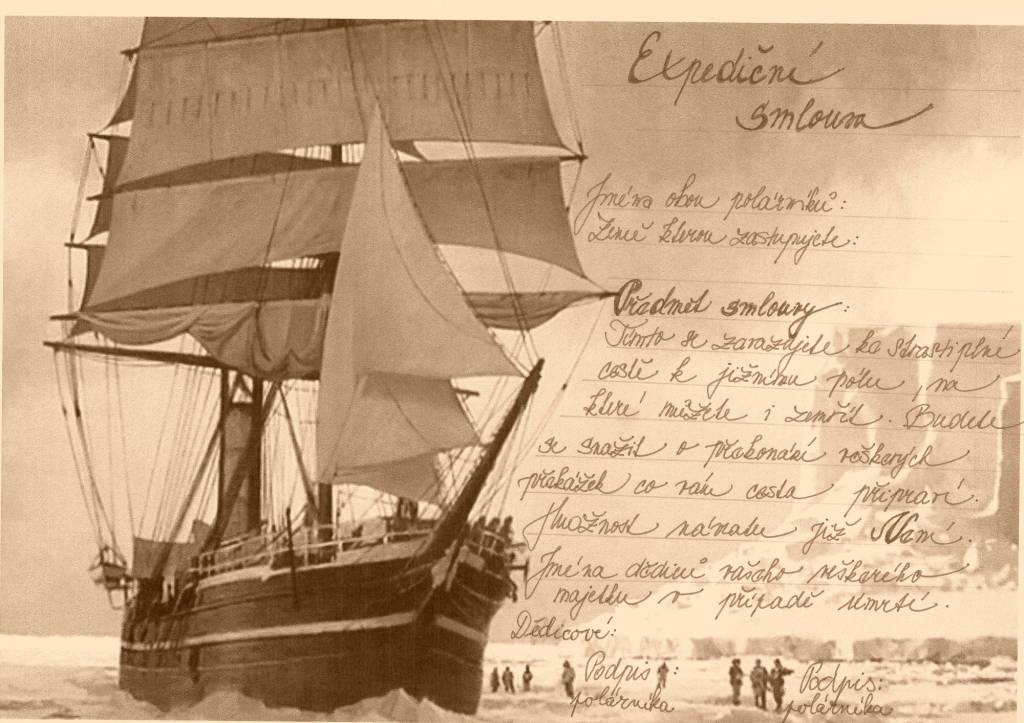 Expediční
smlouva
Jména obou polárníků:
Země kterou zastupujete:
Předmět smlouvy:
Tímto se zavazujete ke strastiplné
cestě k jižnímu pólu, na
které můžete i zemřít. Budete
se snažit o překonání veškerých
překážek co vám cesta připraví.
Možnost návratu již Není.
Jména dědiců vašeho veškerého
majetku v případě úmrtí.
Dědicové:
Podpis: Podpis:
polárníka polárníka